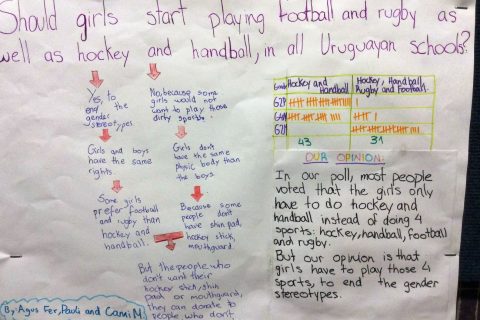 Should girls start playing football and rugby as
well as hockey and handball, in all Uruguayan schools?
Yes, to
end the
gender
stereotypes.
No, because some
girls would not
want to play those
dirty sports.
Girls and boys
have the same
rights.
Girls don't
have the same
physic body than
the boys.
Some girls
prefer football
and rugby than
hockey and
handball.
Because some
people don't
have shin pad,
hockey stick,
mouthguard.
But the people who
don't want their
hockey stick, shin
pads or mouthguard,
they can donate to
people who don't
By: Agus Fer, Pauli and Cami M
Grade
Hockey and
Handball
Hockey, Handball,
Rugby and Football.
43
31
OUR OPINION:
In our poll, most people
voted that the girls only
have to do hockey and
handball instead of doing 4
sports: hockey, handball, football
and rugby.
But our opinion is that
girls have to play those 4
sports, to end the gender
stereotypes.